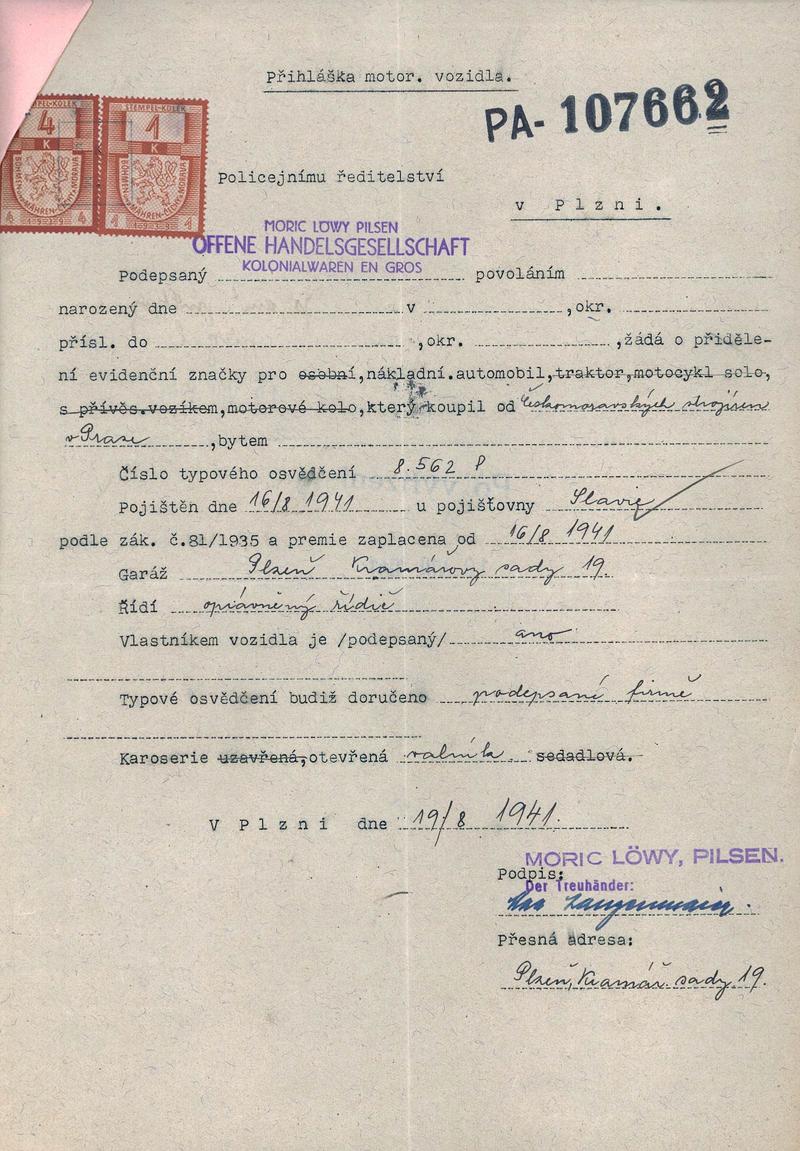 Přihláška motor. vozidla.
PA-107662
STEMPEL-KOLEK
4
K
BÖHMEN MÄHREN
4 4
1·9·3·9
STEMPEL-KOLEK
1
K
BÖHMEN u. MÄHREN ČECHY MORAVA
1·9·3·9
Policejnímu ředitelství
v Plzni.
MORIC LÖWY PILSEN
OFFENE HANDELSGESELLSCHAFT
KOLONIALWAREN EN GROS
Podepsaný povoláním
narozený dne v , okr.
přísl. do , okr. , žádá o přiděle-
ní evidenční značky pro osobní, nákladní. automobil, traktor, motocykl solo,
s přívěs. vozíkem, motorové kolo, který koupil od Českomoravských strojíren
v Praze , bytem
Číslo typového osvědčení 8.562 P
Pojištěn dne 16/8 1941 u pojišťovny Slavie
podle zák. č.81/1935 a premie zaplacena od 16/8 1941
Garáž Plzeň Kramářovy sady 19.
Řídí oprávněný řidič
Vlastníkem vozidla je /podepsaný/ ano
Typové osvědčení budiž doručeno podepsané firmě
Karoserie uzavřená, otevřená valník. sedadlová.
V Plzni dne 19/8 1941.
MORIC LÖWY, PILSEN.
Podpis:
Der Treuhänder:
Přesná adresa:
Plzeň, Kramář. sady 19.